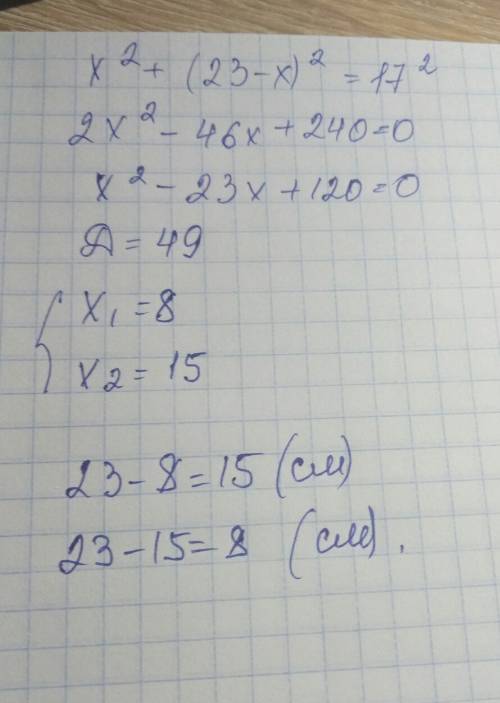 x² + (23-x)² = 17²
2x² - 46x + 240 = 0
x² - 23x + 120 = 0
Д = 49
x₁ = 8
x₂ = 15
23 - 8 = 15 (см)
23 - 15 = 8 (см).